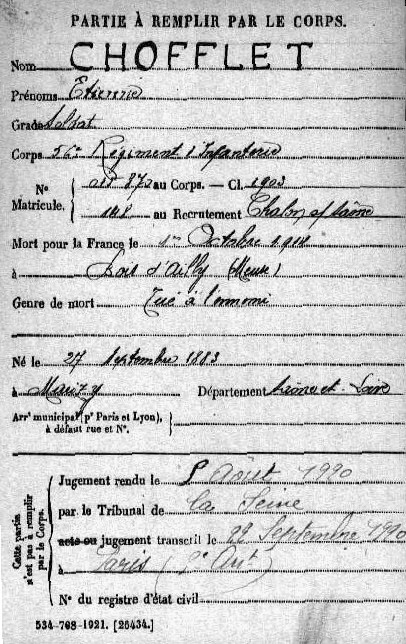 PARTIE À REMPLIR PAR LE CORPS.
Nom CHOFFLET
Prénoms Etienne
Grade Soldat
Corps 56e Régiment d'Infanterie
N° Matricule. 870 au Corps. — Cl. 1903
148 au Recrutement Chalon s/ Saône
Mort pour la France le 1er Octobre 1914
à Bois d'Ailly (Meuse)
Genre de mort Tué à l'ennemi
Né le 27 Septembre 1883
à Département Saône-et-Loire
Arrt municipal (pr Paris et Lyon), à défaut rue et N°.
Cette partie n'est pas à remplir par le Corps.
Jugement rendu le Août 1920
par le Tribunal de la Seine
acte ou jugement transcrit le 22 Septembre 1920
à Paris
N° du registre d'état civil
534-708-1921. [26434.]